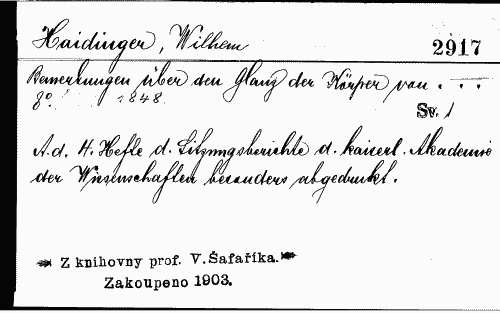 Haidinger, Wilhem
2917
Bemerkungen über den Glanz der Körper von . . .
8o. 1848.
Sv. 1
A. d. 4. Hefte d. Sitzungsberichte d. kaiserl. Akademie
der Wissenschaften besonders abgedruckt.
Z knihovny prof. V. Šafaříka.
Zakoupeno 1903.